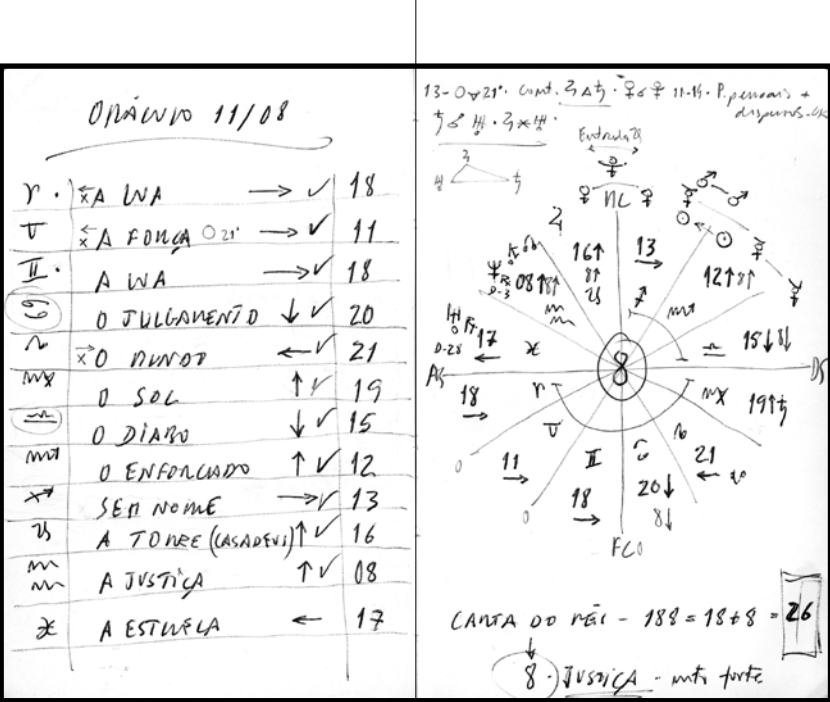 ORÁCULO 11/08
♈ · ←x A LUA → ✓ 18
♉ ←x A FORÇA ○ 21° → ✓ 11
♊ · A LUA → ✓ 18
♋ O JULGAMENTO ↓ ✓ 20
♌ →x O MUNDO ← ✓ 21
♍ O SOL ↑ ✓ 19
♎ O DIABO ↓ ✓ 15
♏ O ENFORCADO ↑ ✓ 12
♐ SEM NOME → ✓ 13
♑ A TORRE (CASA DEUS) ↑ ✓ 16
♒ A JUSTIÇA ↑ ✓ 08
♓ A ESTRELA ← 17
13 - 21° · cont. ♃ △ ♄ · ♀ ☌ ☿ 11-14 · P. pessoais +
♄ ☍ ♅ · ♃ ⚹ ♅ ·
Entrada
♃
♅ ♄
☿ MC ☿
♃ 16↑ 13 →
8↑
♑ ♐
08↑ 8↑ 12↑ 8↑
D-3 ♒ ♏
17 ← ♓ ♎ 15↓ 8↓
D-28
AS 8 DS
18 → ♈ ♍ 19↑ ♄
♉ ♌
11 → ♊ ♋ 21 ←
18 → 20↓
8↓
FC
CARTA DO MÊS - 188 = 18+8 = 26
↓
8 · JUSTIÇA - mto forte